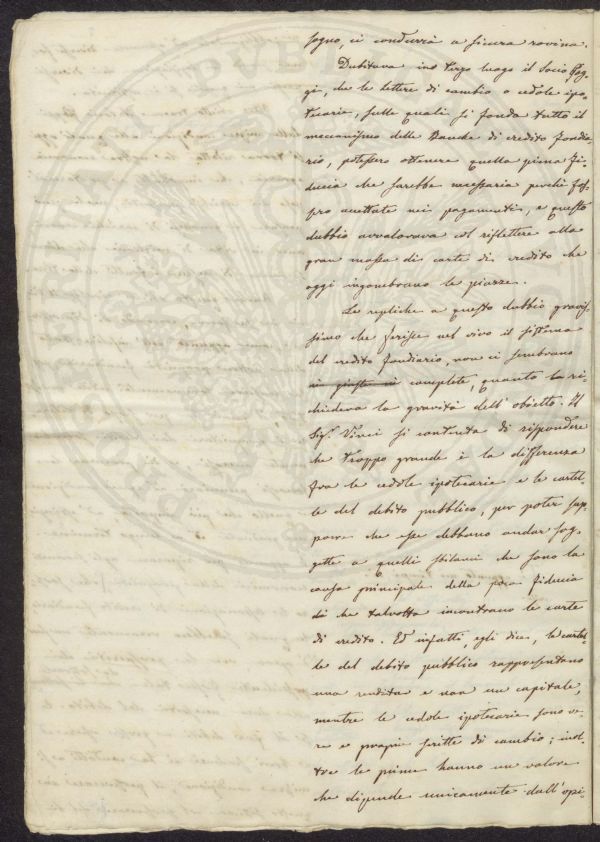 sogno, ci condurrà a sicura rovina.
Dubitava in terzo luogo il Socio Pog-
gi, che le lettere di cambio o cedole ipo-
tecarie, sulle quali si fonda tutto il
meccanismo delle Banche di credito fondia-
rio, potessero ottenere quella piena fi-
ducia che sarebbe necessaria perché fos-
sero accettate nei pagamenti, e questo
dubbio avvalorava col riflettere alla
gran massa di carte di credito che
oggi ingombrano le piazze.
Le repliche a questo dubbio gravis-
simo che ferisce nel vivo il sistema
del credito fondiario, non ci sembrano
complete, quanto la ri-
chiedeva la gravità dell'obietto. Il
Sig.r Vinci si contenta di rispondere
che troppo grande è la differenza
fra le cedole ipotecarie e le cartel-
le del debito pubblico, per poter sup-
porre che esse debbano andar sog-
gette a quelli sbilanci che sono la
causa principale della poca fiducia
che talvolta incontrano le carte
di credito. Ed infatti, egli dice, le cartel-
le del debito pubblico rappresentano
una rendita e non un capitale,
mentre le cedole ipotecarie sono ve-
re e proprie scritte di cambio; inol-
tre le prime hanno un valore
che dipende unicamente dall'opi-